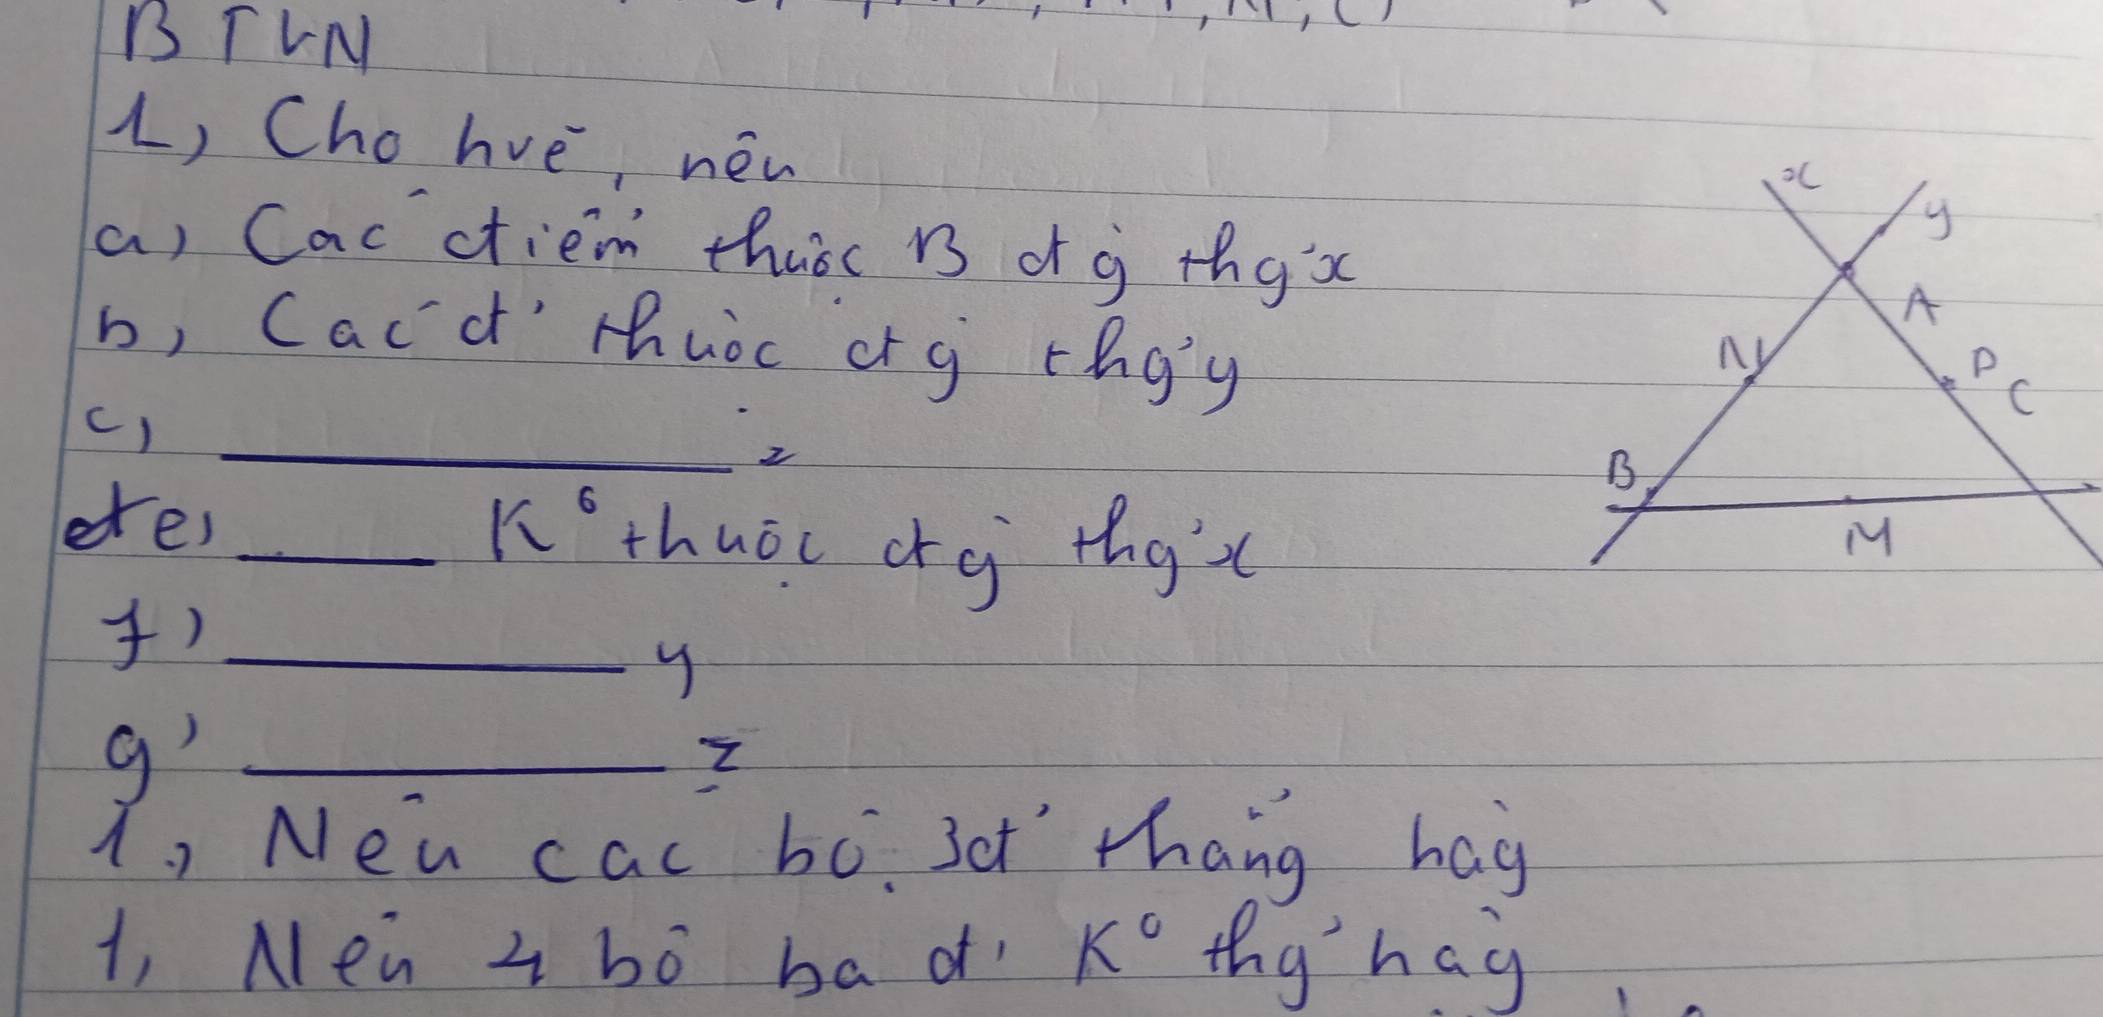 BTVN
1, Cho hvẽ, nêu
a) Các điểm thuộc B đg thg' x
b, Các đ' thuộc đg thg' y
c, z
đ e) K° thuộc đg thg' x
f) y
g' z
1, Nêu các bộ 3đ' thẳng hàg
1, Nêu 4 bộ ba đ' K° thg' hàg
x
y
A
N
P
C
B
M